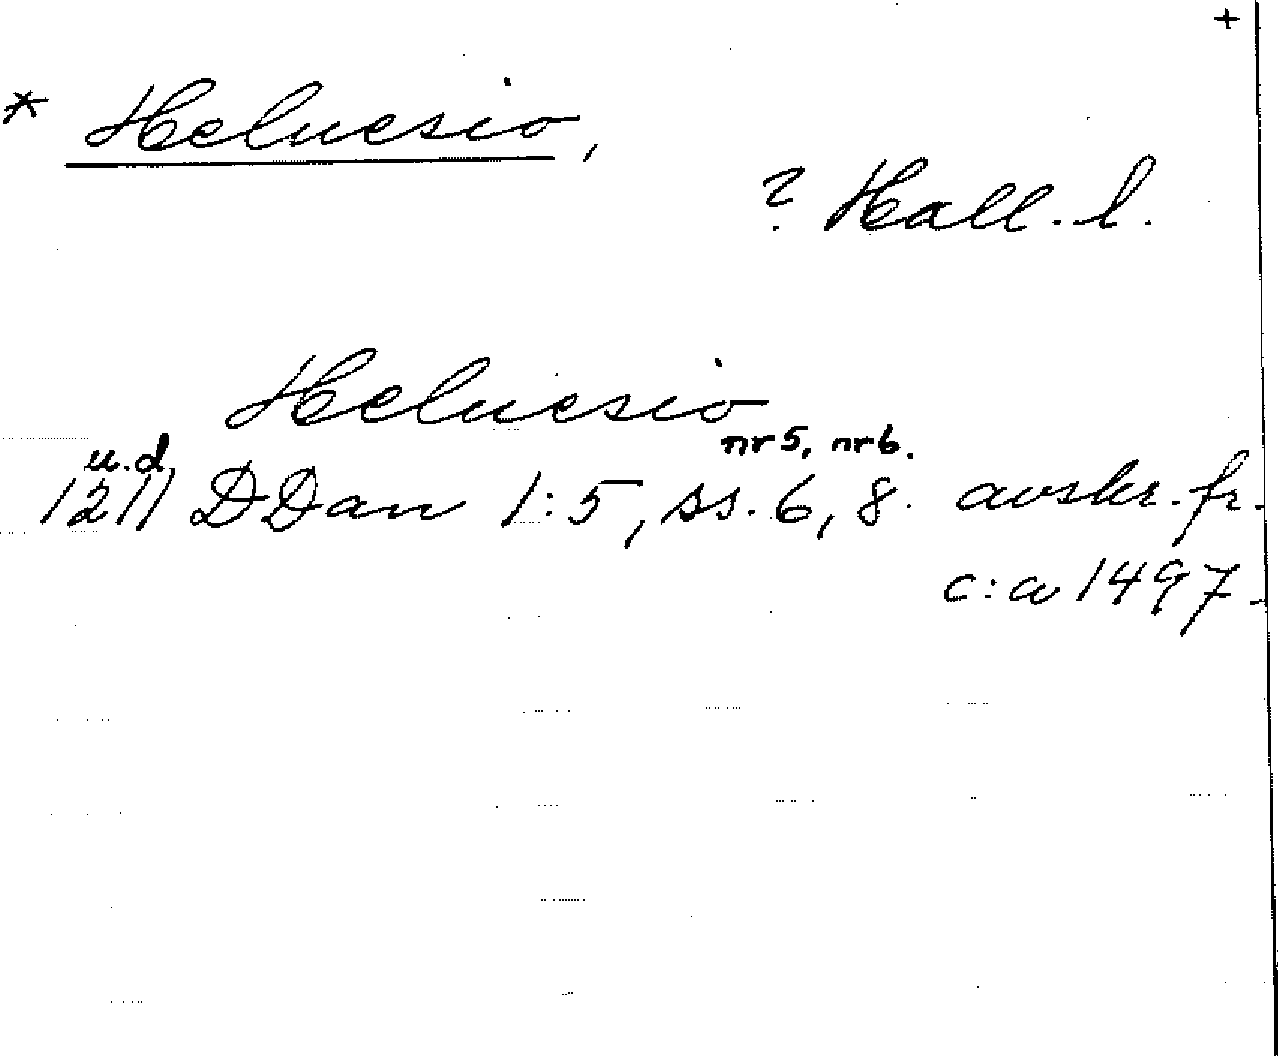 +
* Heluesio,
? Hall. l.
Heluesio
nr 5, nr 6.
u.d.
1211 DDan 1:5, ss. 6, 8. avskr. fr.
c:a 1497.